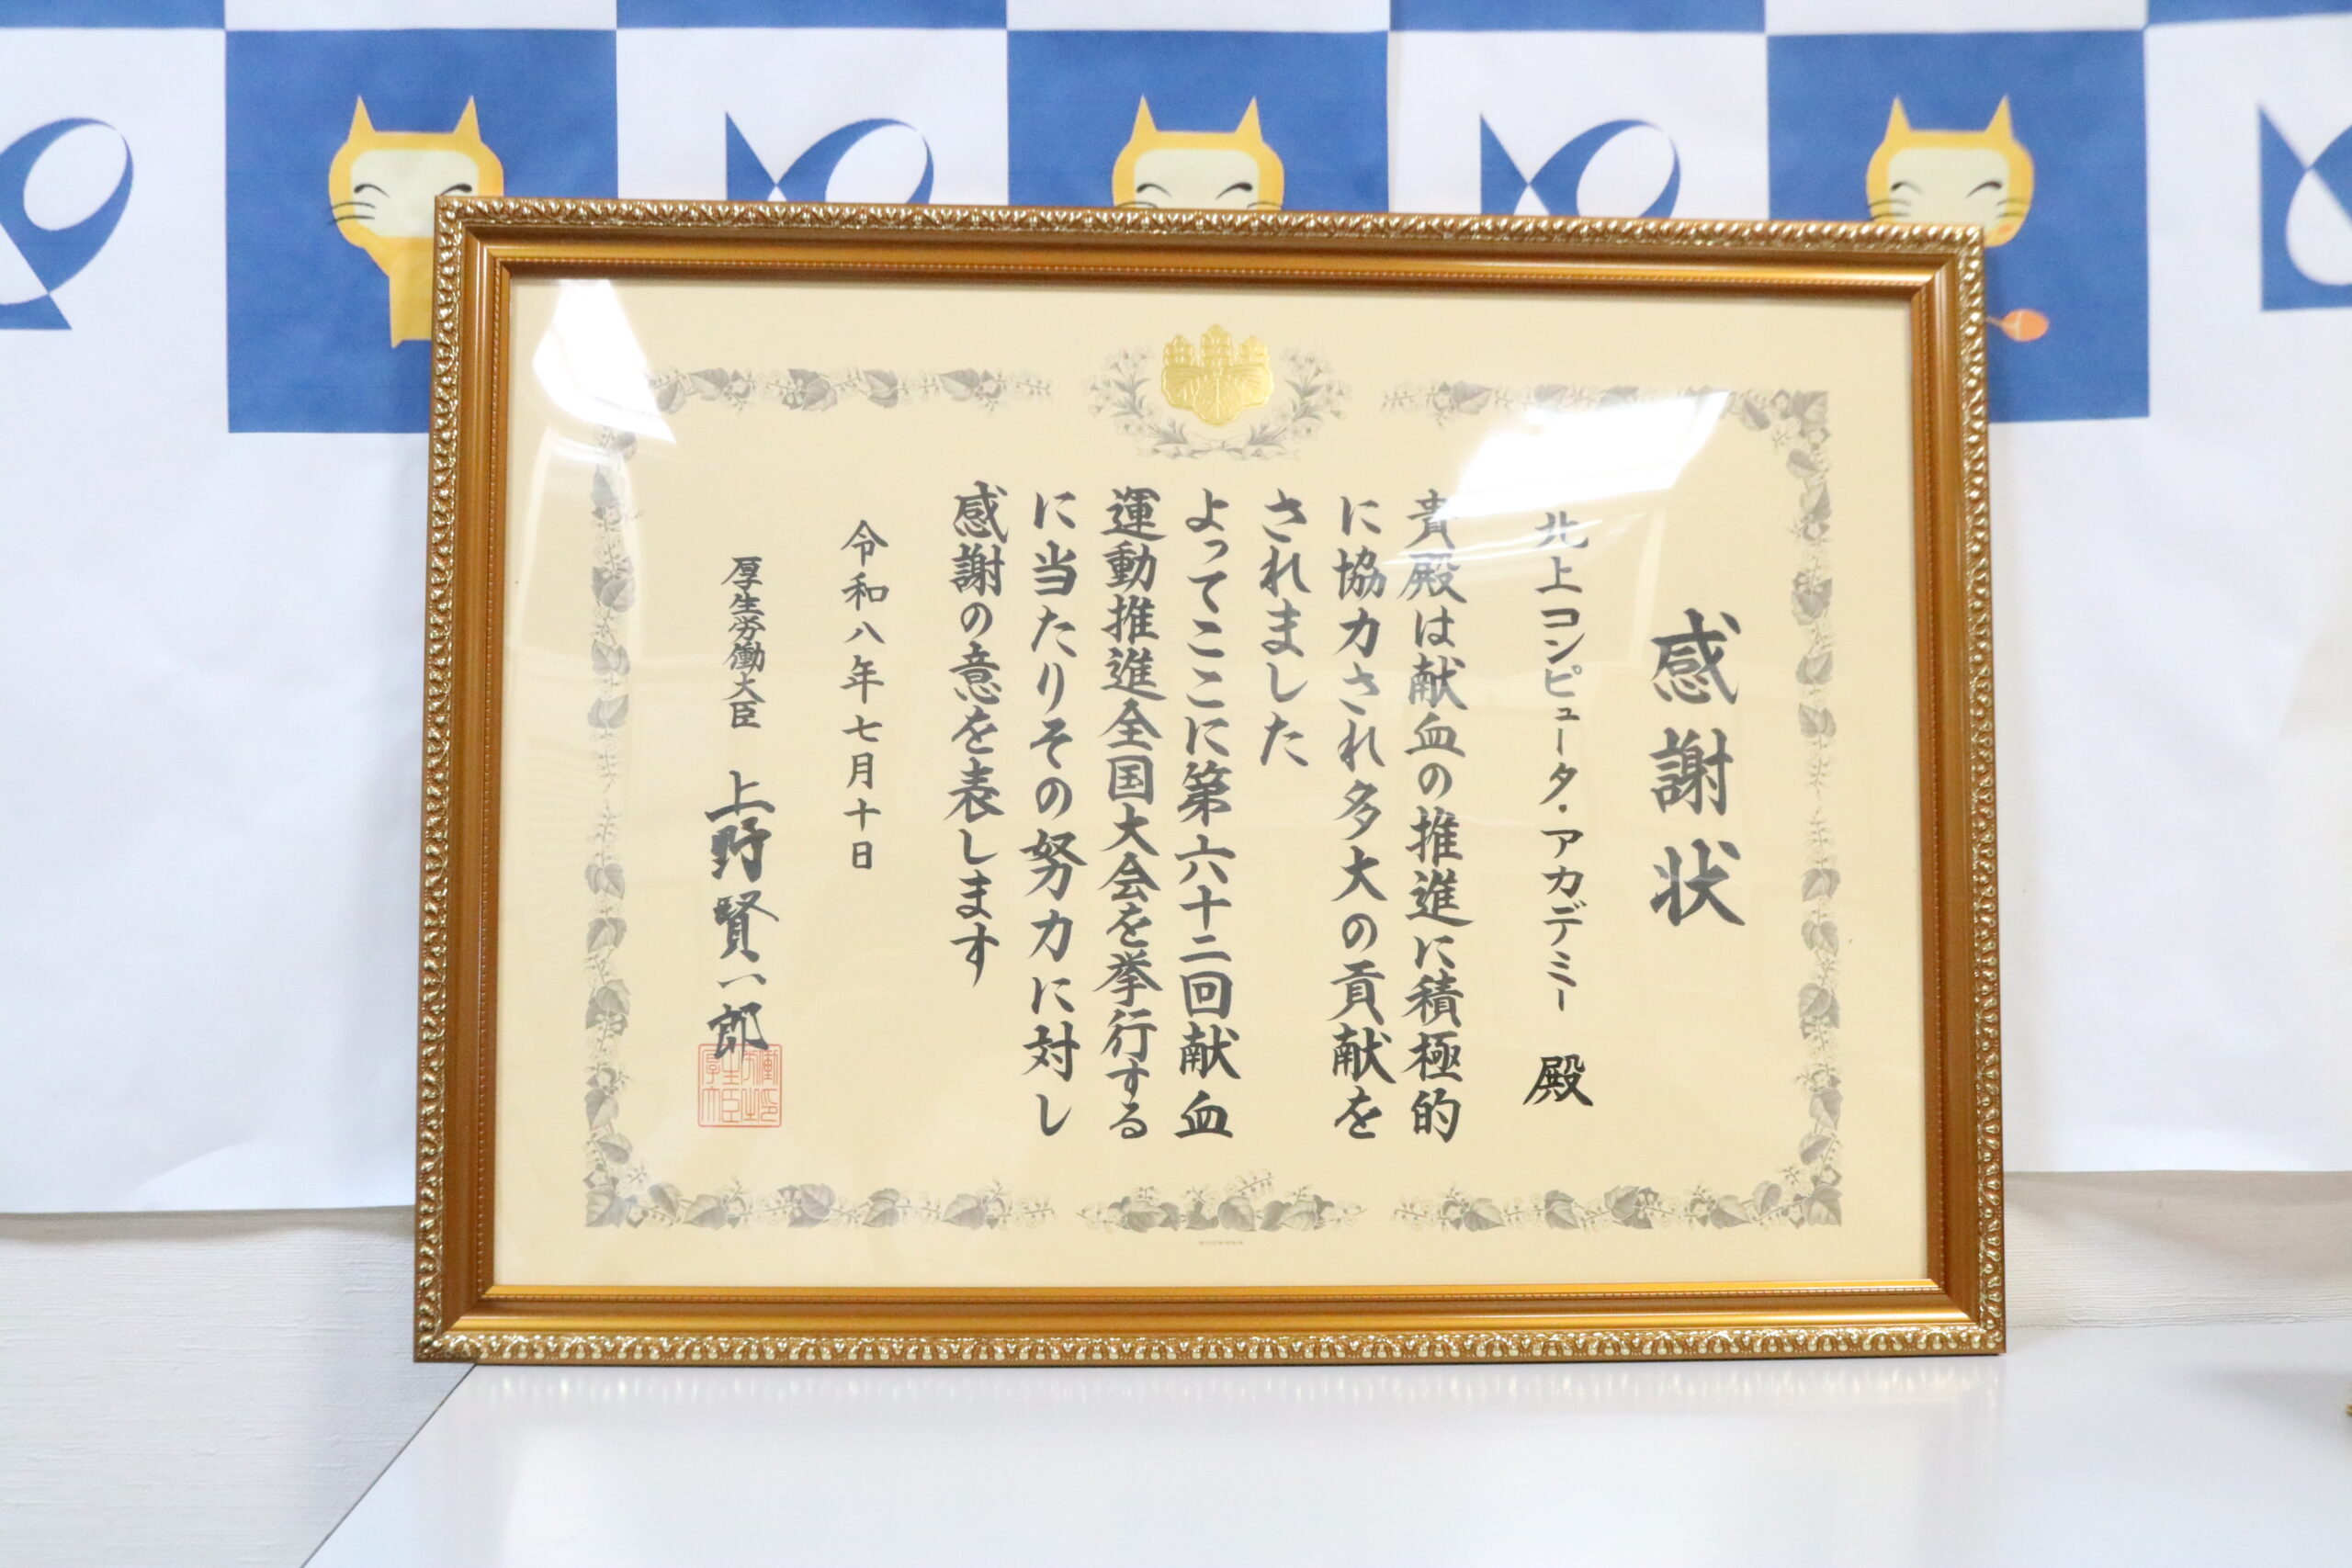 感謝状
北上コンピュータ・アカデミー 殿
貴殿は献血の推進に積極的
に協力され多大の貢献を
されました
よってここに第六十二回献血
運動推進全国大会を挙行する
に当たりその努力に対し
感謝の意を表します
令和八年七月十日
厚生労働大臣 上野賢一郎